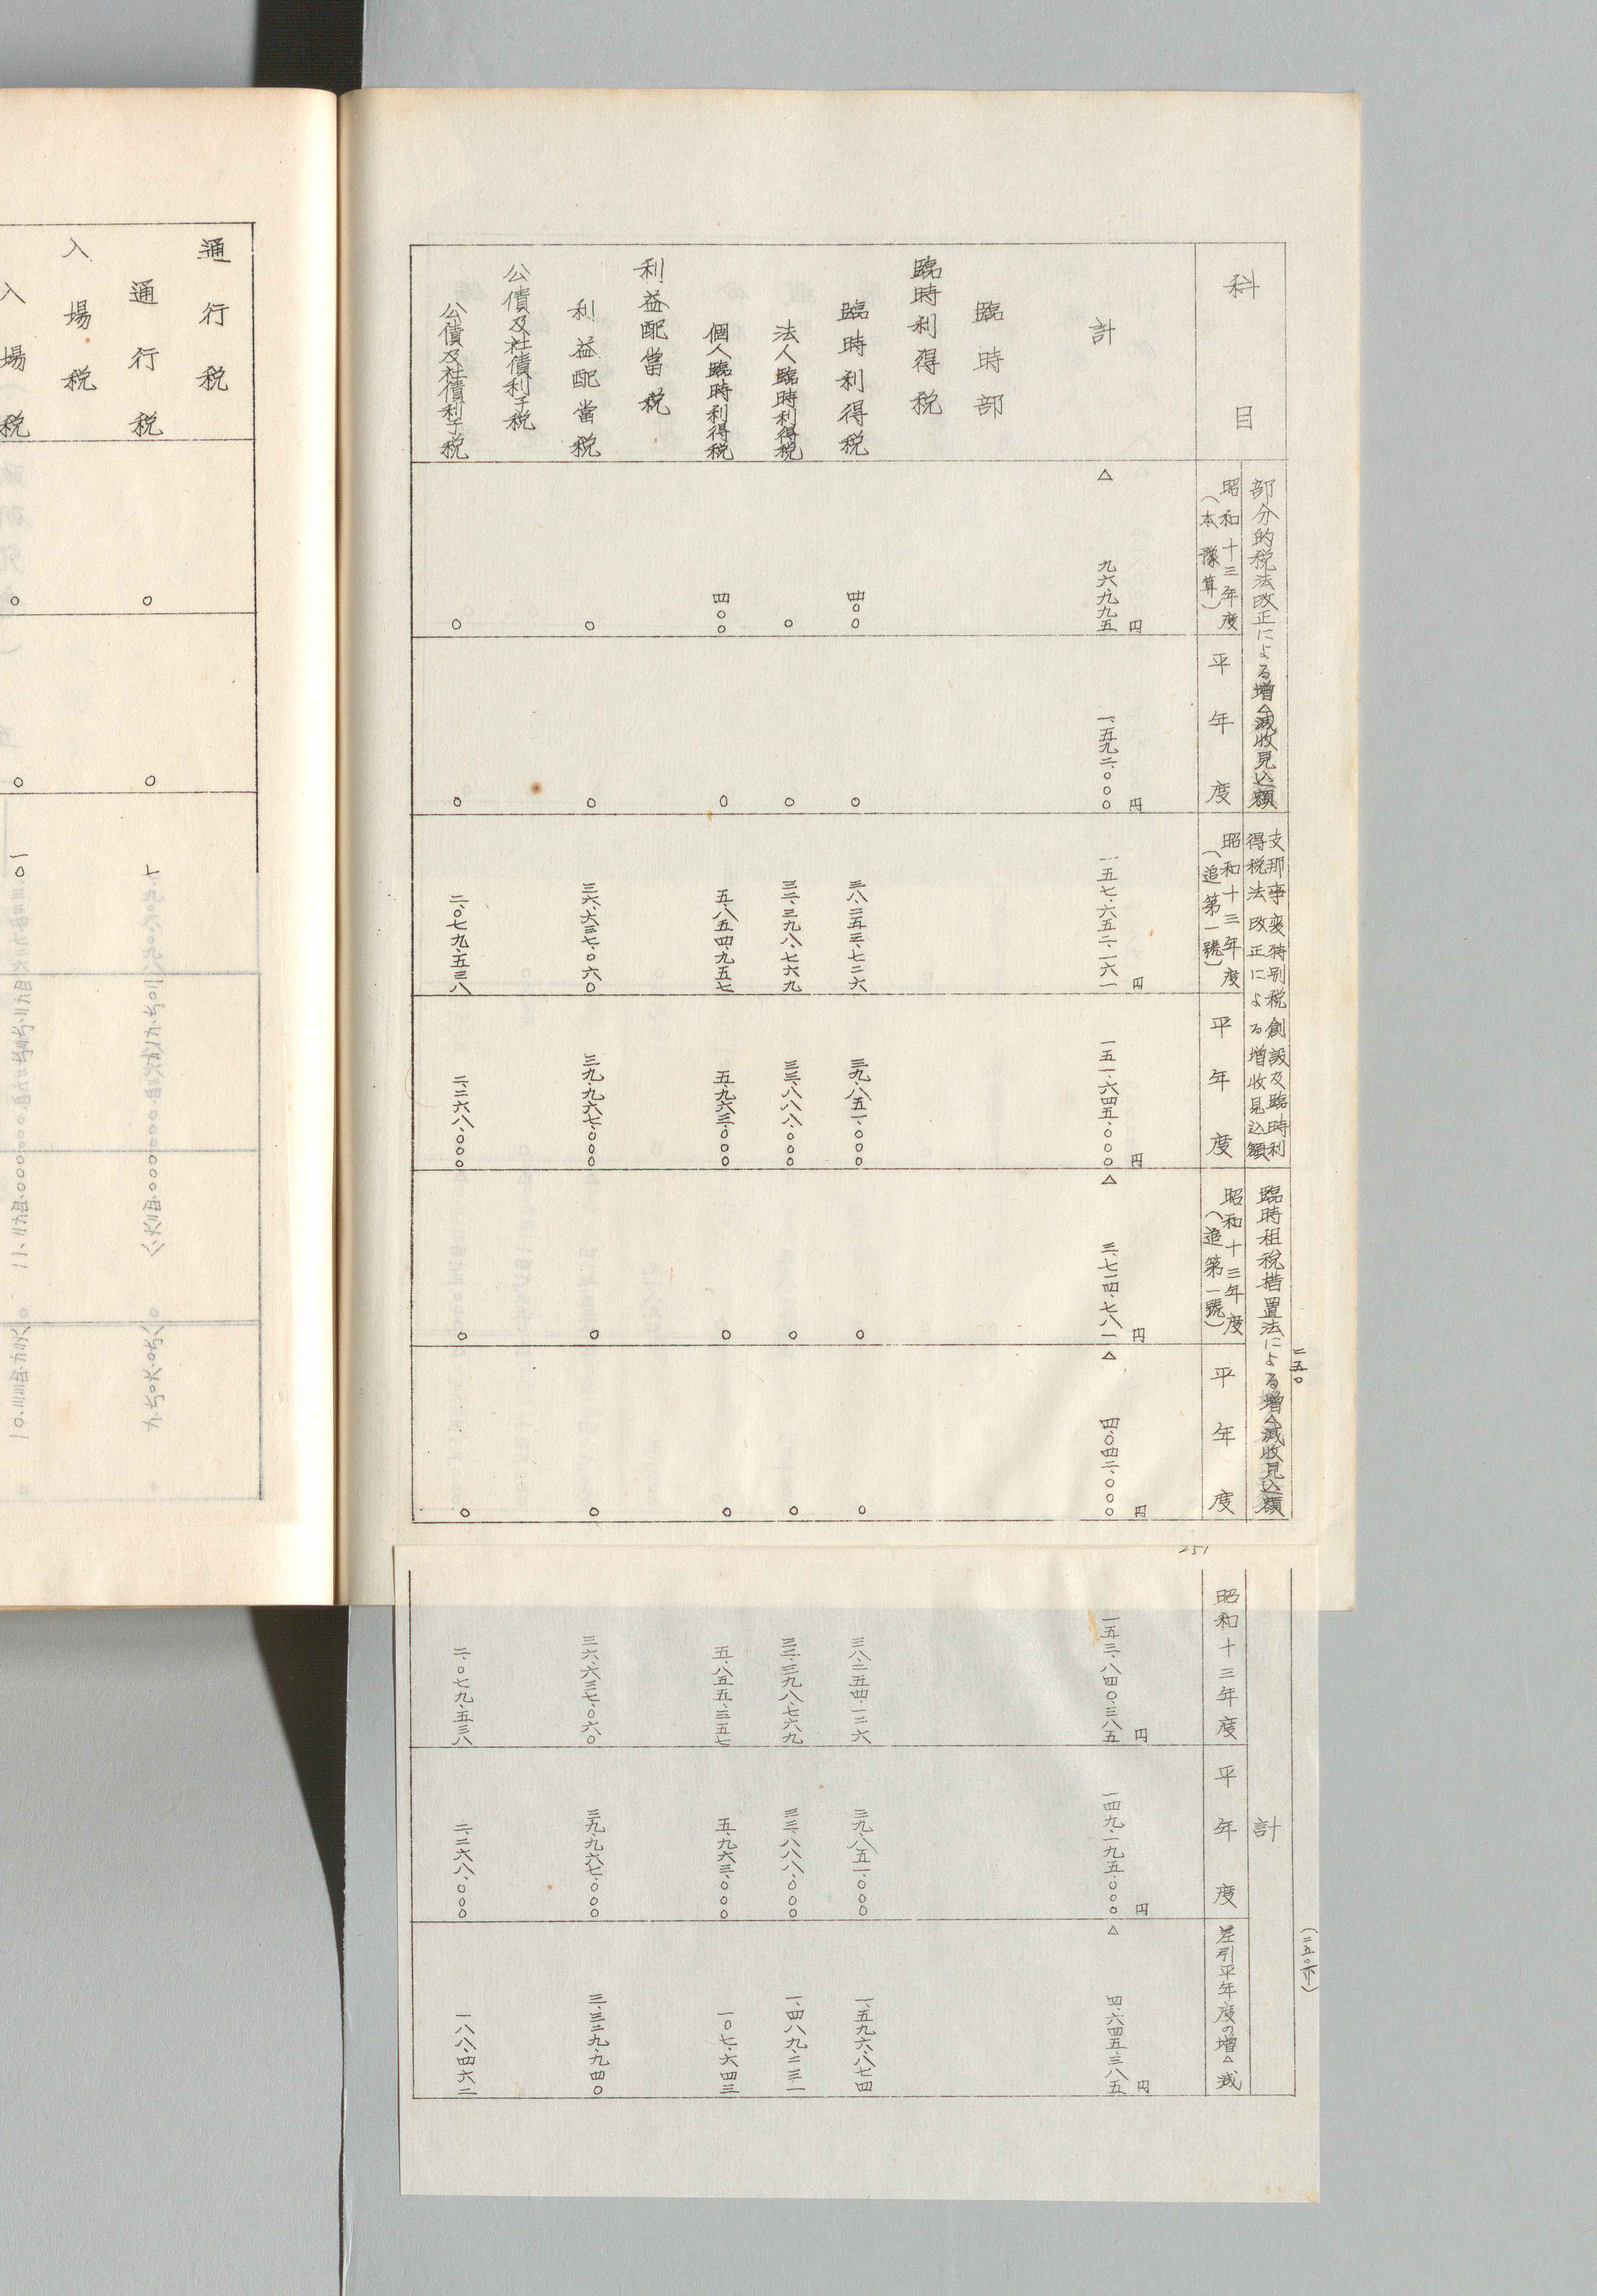 二五〇
(二五〇ノ下)
251
科目
部分的税法改正による増△減收見込額
支那事変特別税創設及臨時利
得税法改正による増收見込額
臨時租税措置法による増△減收見込額
計
昭和十三年度
(本豫算)
平年度
昭和十三年度
(追第一號)
平年度
昭和十三年度
(追第一號)
平年度
昭和十三年度
平年度
差引平年度の増△減
円 円 円 円 円 円 円 円 円
計 △九六、九九五 一、五九二、〇〇〇 一五七、六五二、一六一 一五一、六四五、〇〇〇 △三、七一四、七八一 △四、〇四二、〇〇〇 一五三、八四〇、三八五 一四九、一九五、〇〇〇 △四、六四五、三八五
臨時部
臨時利得税
臨時利得税 四〇〇 〇 三八、二五三、七二六 三九、八五一、〇〇〇 〇 〇 三八、二五四、一二六 三九、八五一、〇〇〇 一、五九六、八七四
法人臨時利得税 〇 〇 三二、三九八、七六九 三三、八八八、〇〇〇 〇 〇 三二、三九八、七六九 三三、八八八、〇〇〇 一、四八九、二三一
個人臨時利得税 四〇〇 〇 五、八五四、九五七 五、九六三、〇〇〇 〇 〇 五、八五五、三五七 五、九六三、〇〇〇 一〇七、六四三
利益配當税
利益配當税 〇 〇 三六、六三七、〇六〇 三九、九六七、〇〇〇 〇 〇 三六、六三七、〇六〇 三九、九六七、〇〇〇 三、三二九、九四〇
公債及社債利子税
公債及社債利子税 〇 〇 二、〇七九、五三八 二、二六八、〇〇〇 〇 〇 二、〇七九、五三八 二、二六八、〇〇〇 一八八、四六二
通行税
通行税 〇 〇
入場税
入場税 〇 〇